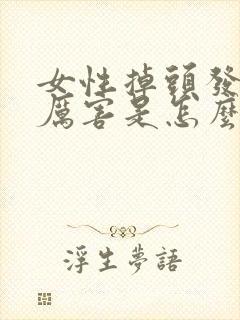 女性掉頭發
厲害是怎麼
浮生夢語